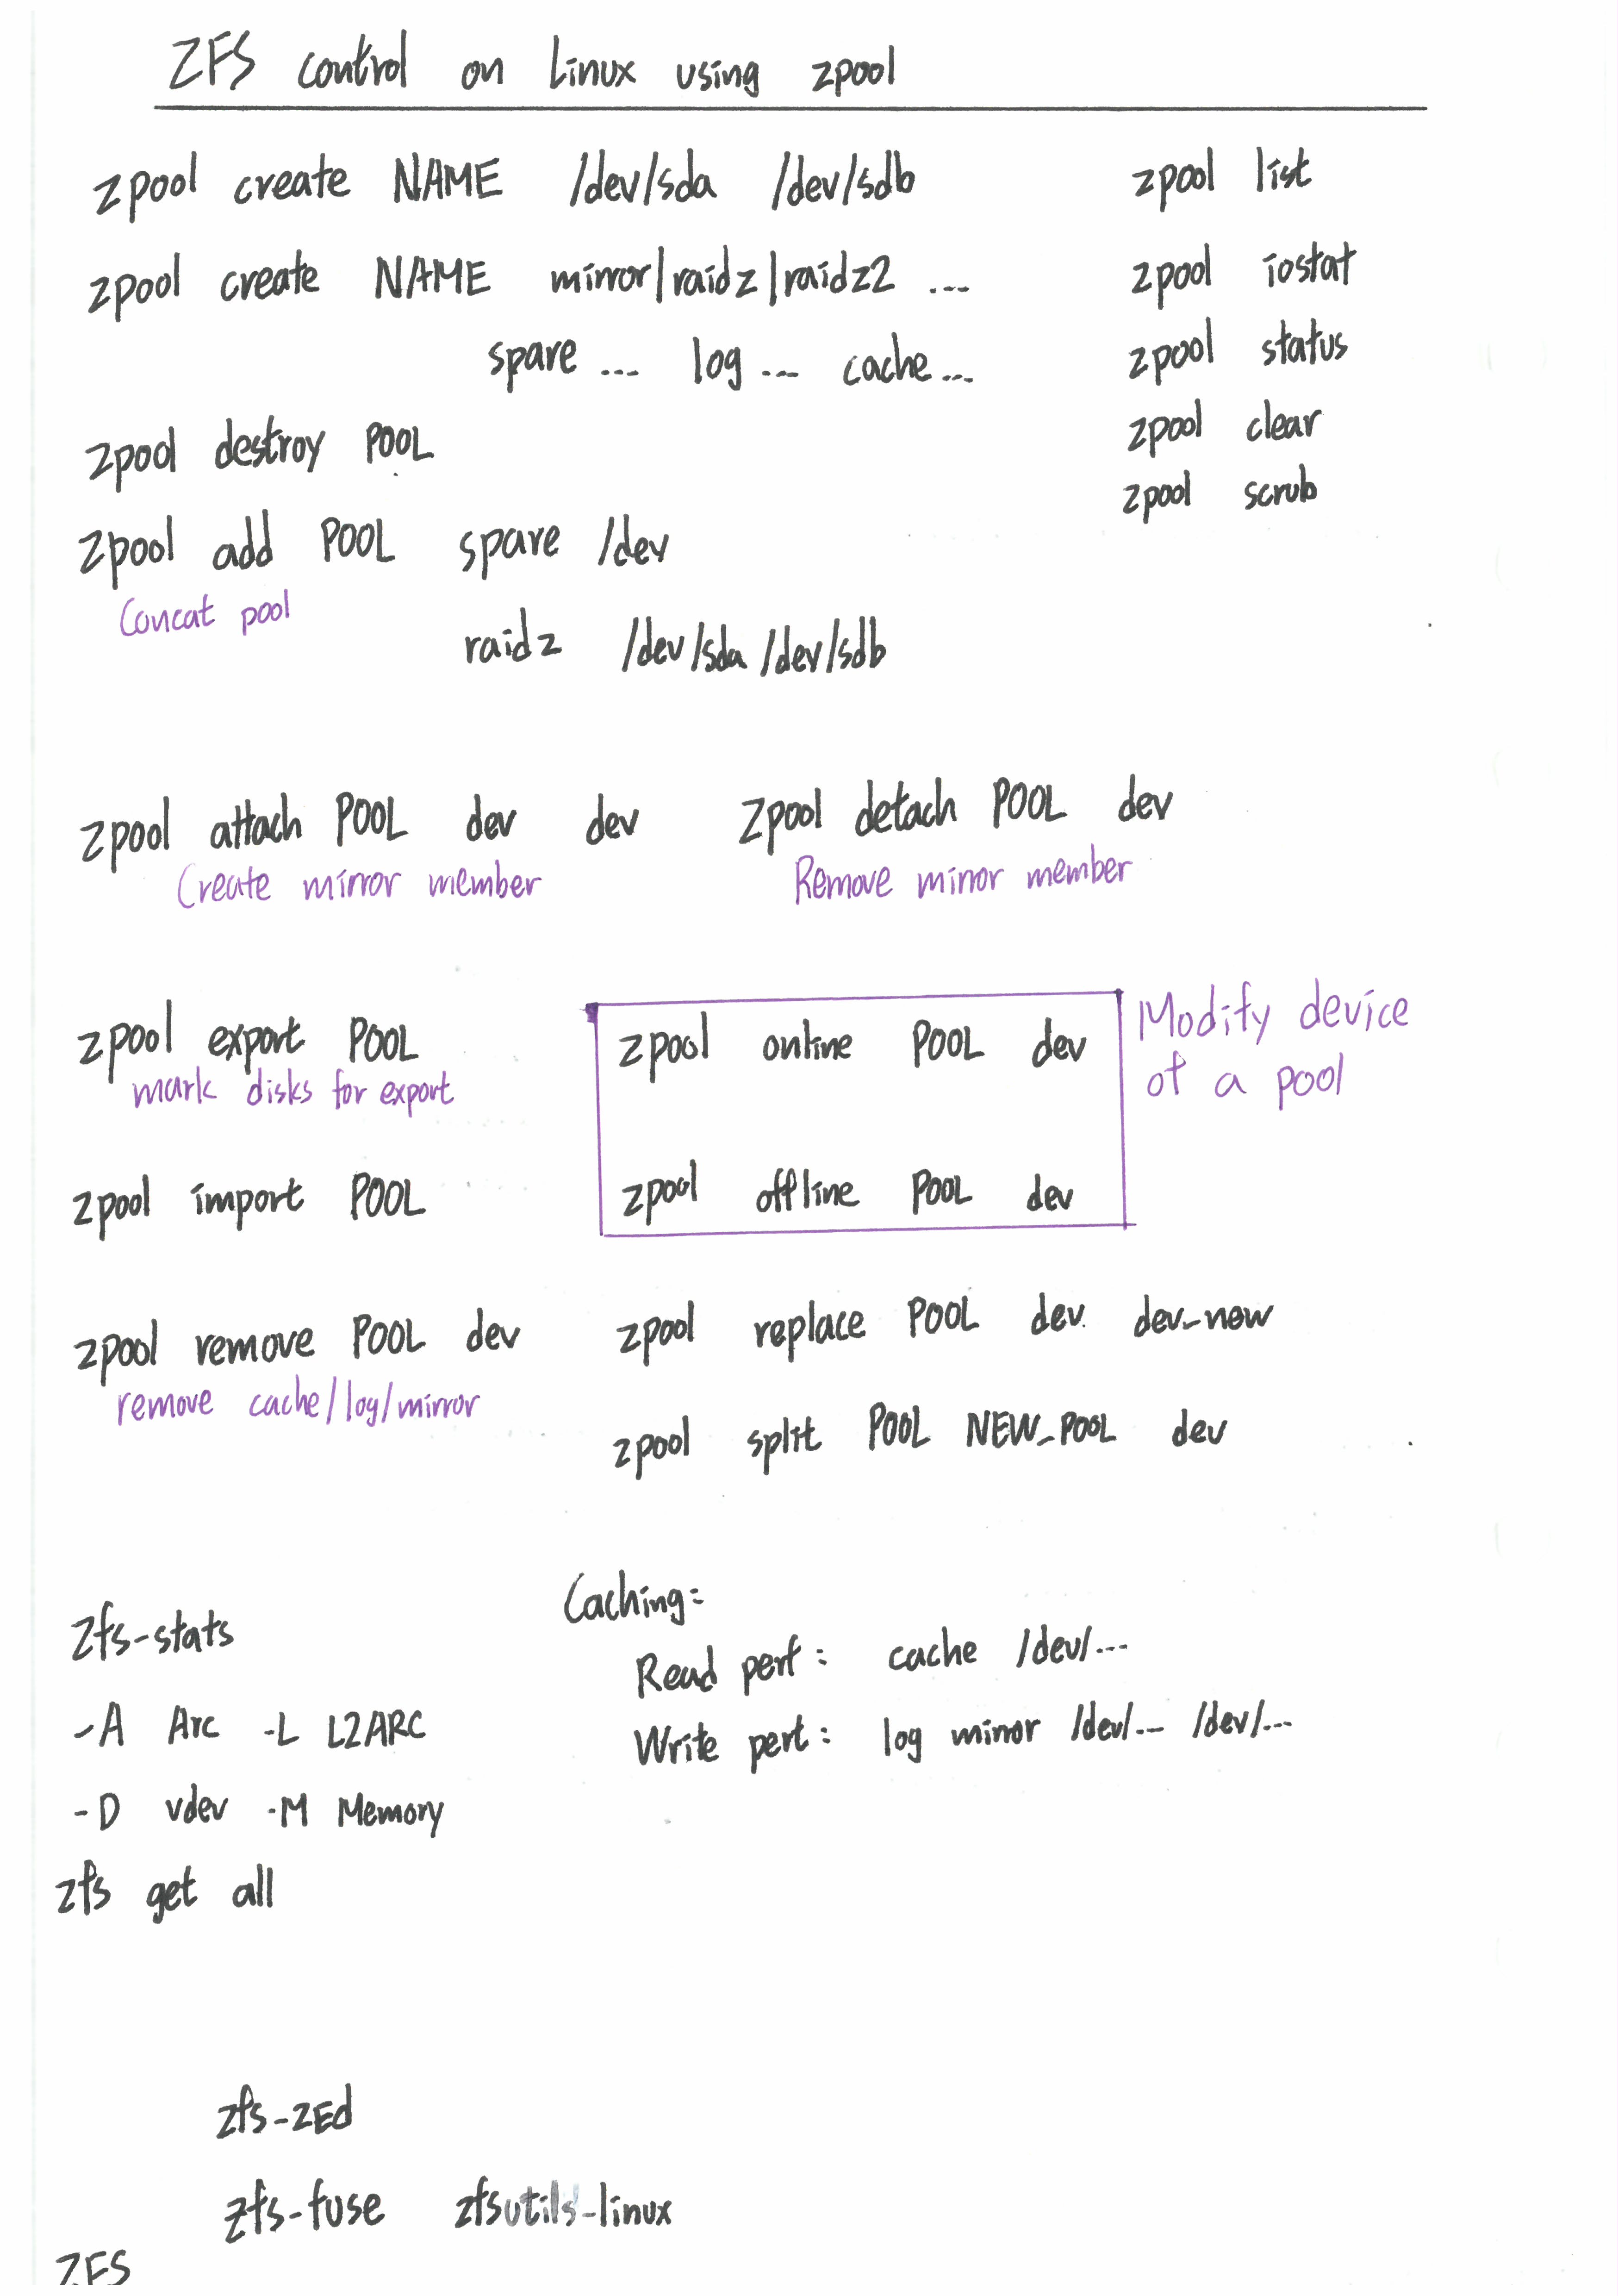 ZFS control on Linux using zpool
zpool create NAME /dev/sda /dev/sdb
zpool create NAME mirror|raidz|raidz2 ...
spare ... log ... cache ...
zpool destroy POOL
zpool add POOL spare /dev
Concat pool
raidz /dev/sda /dev/sdb
zpool list
zpool iostat
zpool status
zpool clear
zpool scrub
zpool attach POOL dev dev
Create mirror member
zpool detach POOL dev
Remove mirror member
zpool export POOL
mark disks for export
zpool import POOL
zpool online POOL dev
zpool offline POOL dev
Modify device
of a pool
zpool remove POOL dev
remove cache/log/mirror
zpool replace POOL dev dev-new
zpool split POOL NEW_POOL dev
zfs-stats
-A Arc -L L2ARC
-D vdev -M Memory
zfs get all
Caching:
Read perf: cache /dev/...
Write perf: log mirror /dev/... /dev/...
zfs-zEd
zfs-fuse zfsutils-linux
ZFS